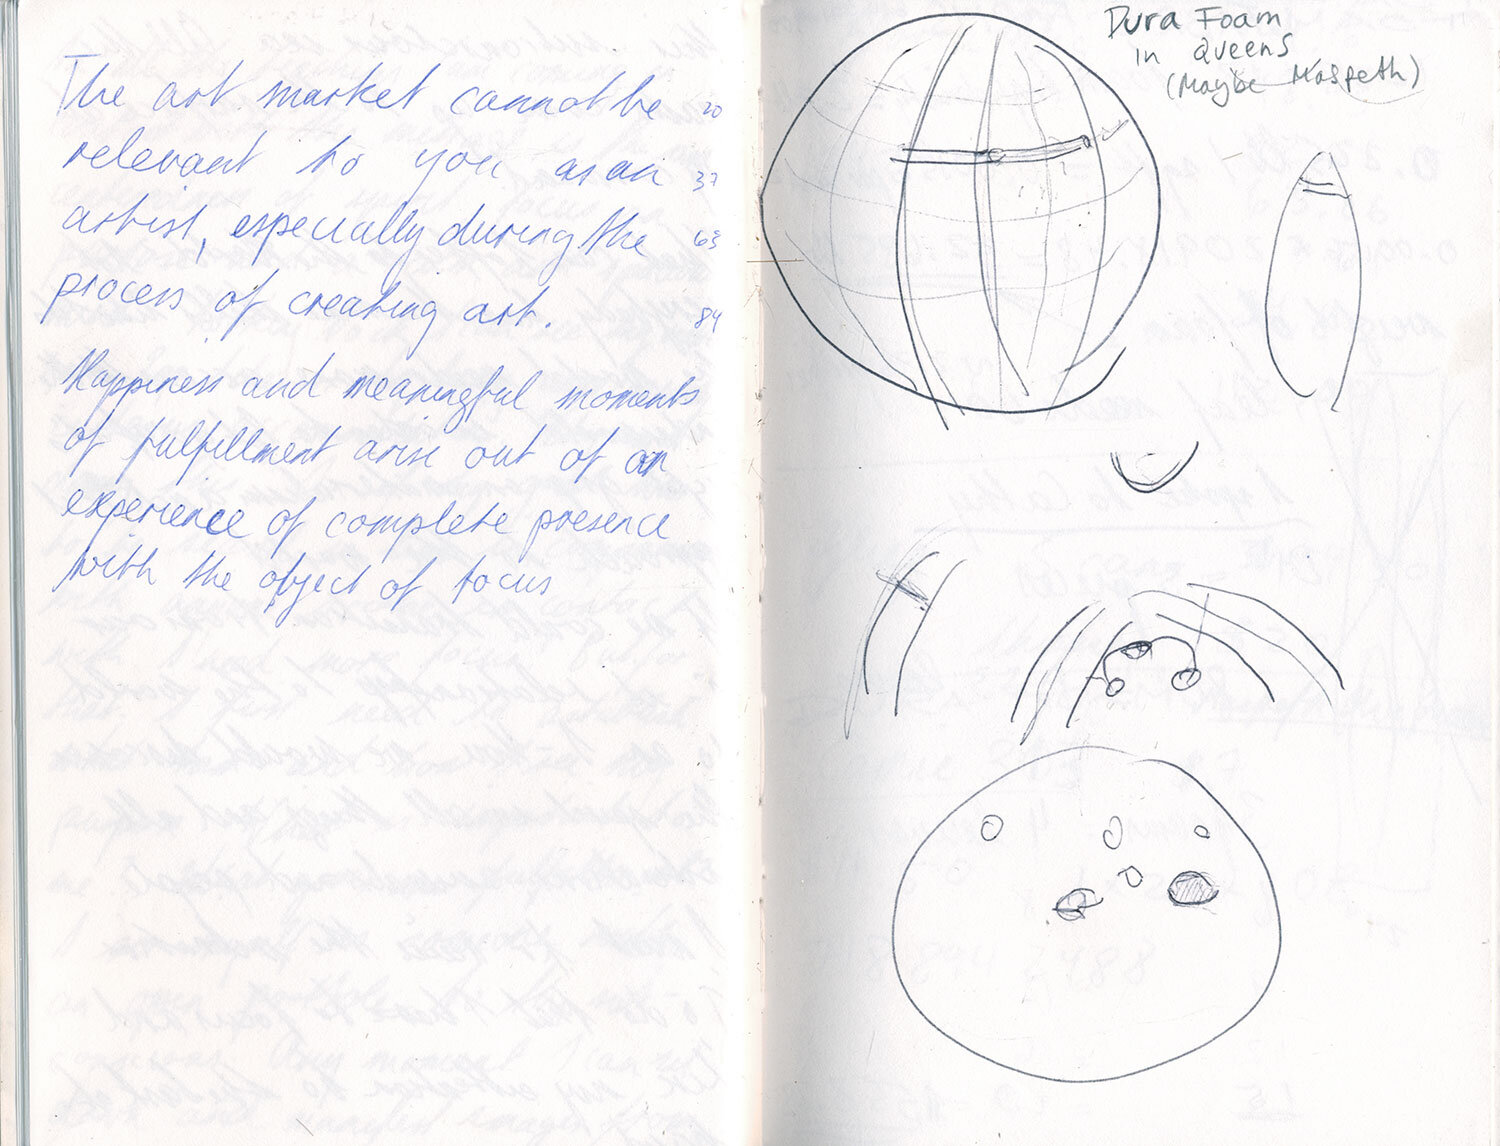 The art market cannot be 20
relevant to you as an 37
artist, especially during the 63
process of creating art. 84
Happiness and meaningful moments
of fulfillment arise out of an
experience of complete presence
with the object of focus
Dura Foam
in Queens
(Maybe Maspeth)